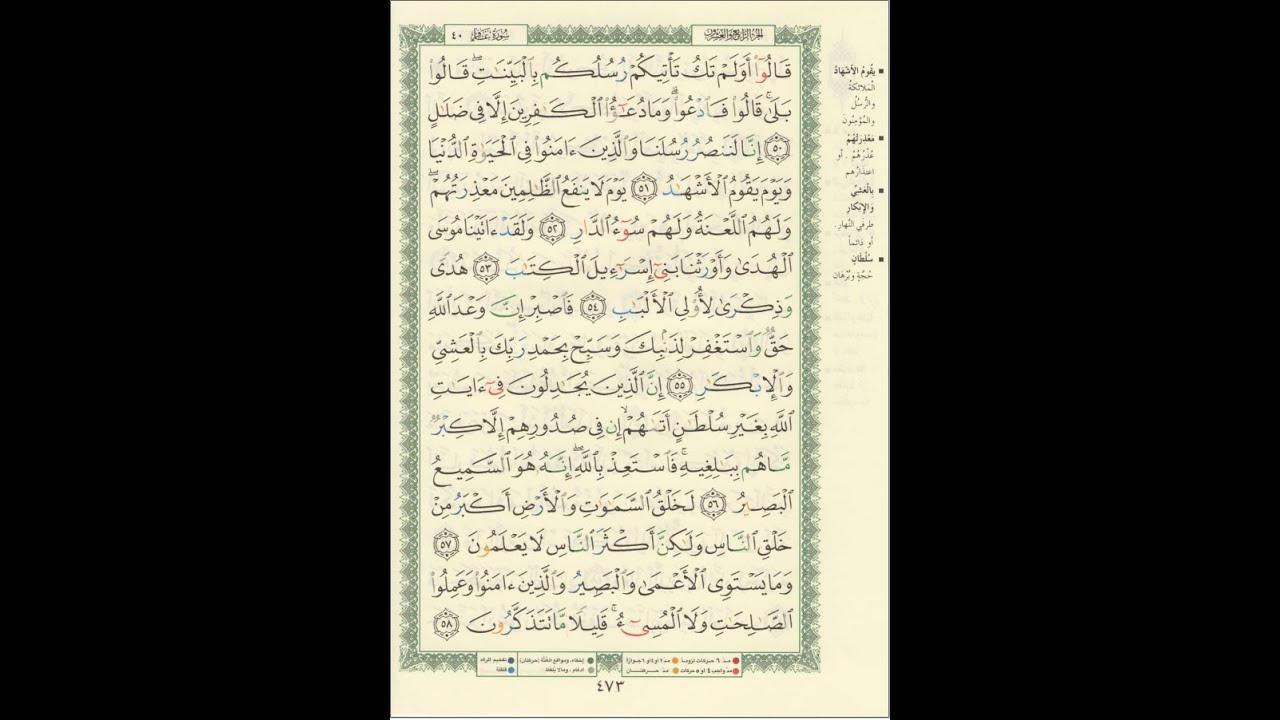 سورة غافر ٤٠
الجزء الرابع والعشرون
قَالُوٓا۟ أَوَلَمْ تَكُ تَأْتِيكُمْ رُسُلُكُم بِٱلْبَيِّنَٰتِ ۖ قَالُوا۟
بَلَىٰ ۚ قَالُوا۟ فَٱدْعُوا۟ ۗ وَمَا دُعَٰٓؤُا۟ ٱلْكَٰفِرِينَ إِلَّا فِى ضَلَٰلٍ
٥٠ إِنَّا لَنَنصُرُ رُسُلَنَا وَٱلَّذِينَ ءَامَنُوا۟ فِى ٱلْحَيَوٰةِ ٱلدُّنْيَا
وَيَوْمَ يَقُومُ ٱلْأَشْهَٰدُ ٥١ يَوْمَ لَا يَنفَعُ ٱلظَّٰلِمِينَ مَعْذِرَتُهُمْ ۖ
وَلَهُمُ ٱللَّعْنَةُ وَلَهُمْ سُوٓءُ ٱلدَّارِ ٥٢ وَلَقَدْ ءَاتَيْنَا مُوسَى
ٱلْهُدَىٰ وَأَوْرَثْنَا بَنِىٓ إِسْرَٰٓءِيلَ ٱلْكِتَٰبَ ٥٣ هُدًى
وَذِكْرَىٰ لِأُو۟لِى ٱلْأَلْبَٰبِ ٥٤ فَٱصْبِرْ إِنَّ وَعْدَ ٱللَّهِ
حَقٌّ وَٱسْتَغْفِرْ لِذَنۢبِكَ وَسَبِّحْ بِحَمْدِ رَبِّكَ بِٱلْعَشِىِّ
وَٱلْإِبْكَٰرِ ٥٥ إِنَّ ٱلَّذِينَ يُجَٰدِلُونَ فِىٓ ءَايَٰتِ
ٱللَّهِ بِغَيْرِ سُلْطَٰنٍ أَتَىٰهُمْ ۙ إِن فِى صُدُورِهِمْ إِلَّا كِبْرٌ
مَّا هُم بِبَٰلِغِيهِ ۚ فَٱسْتَعِذْ بِٱللَّهِ ۖ إِنَّهُۥ هُوَ ٱلسَّمِيعُ
ٱلْبَصِيرُ ٥٦ لَخَلْقُ ٱلسَّمَٰوَٰتِ وَٱلْأَرْضِ أَكْبَرُ مِنْ
خَلْقِ ٱلنَّاسِ وَلَٰكِنَّ أَكْثَرَ ٱلنَّاسِ لَا يَعْلَمُونَ ٥٧
وَمَا يَسْتَوِى ٱلْأَعْمَىٰ وَٱلْبَصِيرُ وَٱلَّذِينَ ءَامَنُوا۟ وَعَمِلُوا۟
ٱلصَّٰلِحَٰتِ وَلَا ٱلْمُسِىٓءُ ۚ قَلِيلًا مَّا تَتَذَكَّرُونَ ٥٨
يَقُومُ الأَشْهَادُ
المَلائكةُ
والرُّسُلُ
والمُؤمِنُونَ
مَعْذِرَتُهُمْ
عُذْرُهُمْ . أو
اعتذارُهم
بالعَشِيّ
وَالإبْكَارِ
طرفيِ النّهارِ .
أو دائماً
سُلْطَانٍ
حُجَّةٍ وبُرْهان
مدّ ٦ حركات لزوماً
مدّ ٢ او ٤ او ٦ جوازاً
مدّ واجب ٤ او ٥ حركات
مدّ حركتان
إخفاء، ومواقع الغُنَّة (حركتان)
ادغام، ومالا يُلفَظ
تفخيم الراء
قلقلة
٤٧٣